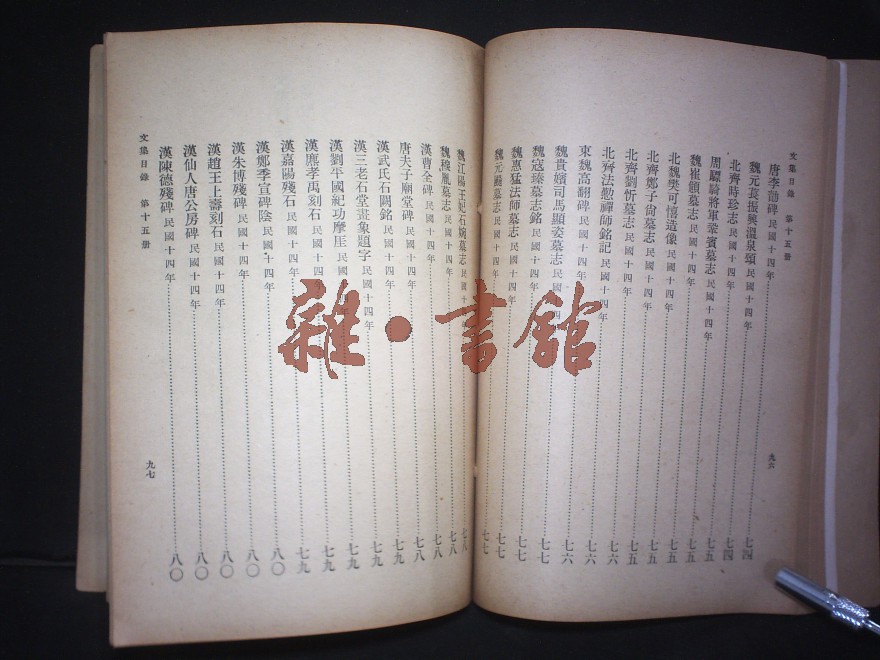 文集目錄 第十五册
唐李勣碑 民國十四年 七四
魏元萇振興溫泉頌 民國十四年 七四
北齊時珍志 民國十四年 七四
周驃騎將軍鞏賓墓志 民國十四年 七五
魏崔頠墓志 民國十四年 七五
北魏樊可憘造像 民國十四年 七五
北齊鄭子尙墓志 民國十四年 七五
北齊劉忻墓志 民國十四年 七五
北齊法懃禪師銘記 民國十四年 七六
東魏高翻碑 民國十四年 七六
魏貴嬪司馬顯姿墓志 民國十四年 七六
魏寇臻墓志銘 民國十四年 七七
魏惠猛法師墓志 民國十四年 七七
魏元颺墓志 民國十四年 七七
九六
魏江陽王妃石婉墓志 民國十四年 七八
魏䅻胤墓志 民國十四年 七八
漢曹全碑 民國十四年 七八
唐夫子廟堂碑 民國十四年 七九
漢武氏石闕銘 民國十四年 七九
漢三老石堂畫象題字 民國十四年 七九
漢劉平國紀功摩厓 民國 七九
漢麃孝禹刻石 民國十四年 七九
漢嘉陽殘石 民國十四年 七九
漢鄭季宣碑陰 民國十四年 八〇
漢朱博殘碑 民國十四年 八〇
漢趙王上壽刻石 民國十四年 八〇
漢仙人唐公房碑 民國十四年 八〇
漢陳德殘碑 民國十四年 八〇
文集目錄 第十五册
九七
雜·書館